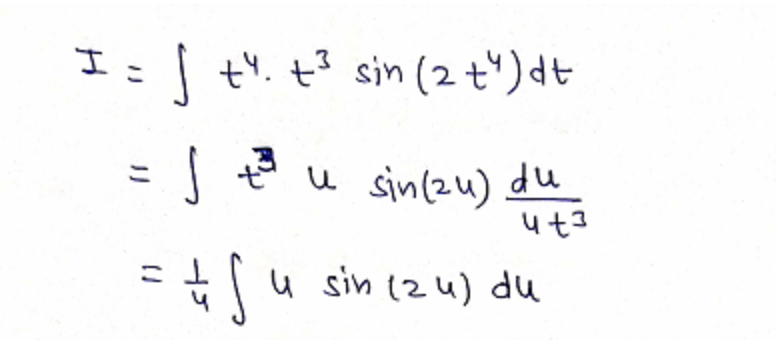 I = ∫ t⁴. t³ sin (2 t⁴) dt
= ∫ t³ u sin(2u) du/4t³
= 1/4 ∫ u sin (2 u) du